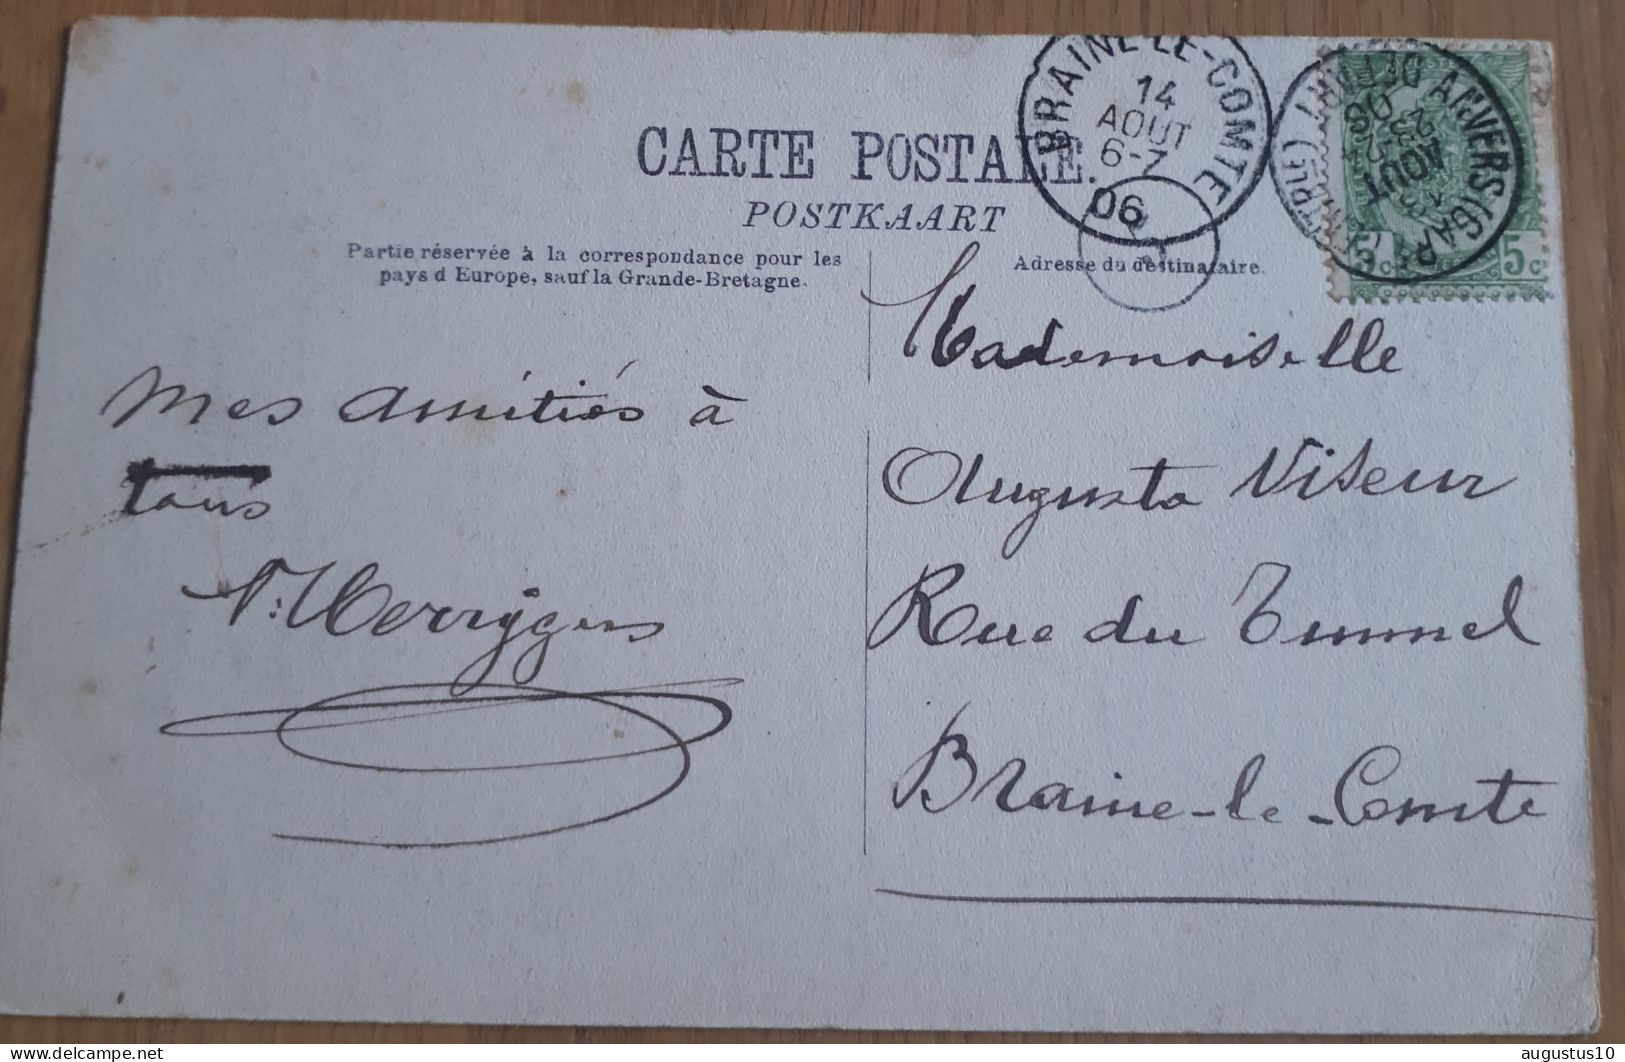 CARTE POSTALE.
POSTKAART
Partie réservée à la correspondance pour les
pays d Europe, sauf la Grande-Bretagne.
Adresse du destinataire.
BRAINE-LE-COMTE
14
AOUT
6-7
06
ANVERS (GARE CENTRALE) DEPART
AOUT
06
5 c
5 c
Mes amitiés à
tous
Mademoiselle
Augusta Viseur
Rue du Tunnel
Braine-le-Comte
www.delcampe.net
augustus10